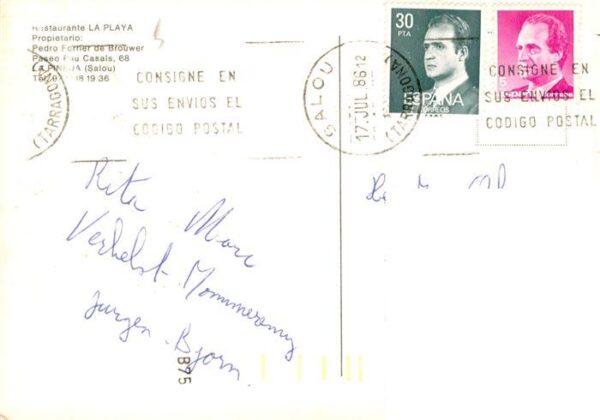 Restaurante LA PLAYA
Propietario:
Pedro Forner de Brouwer
Paseo Pau Casals, 68
LA PINEDA (Salou)
18 19 36
(TARRAGONA)
CONSIGNE EN
SUS ENVIOS EL
CODIGO POSTAL
SALOU
17 JUL 86 12
(TARRAGONA)
30
PTA
ESPAÑA
CORREOS
CONSIGNE EN
SUS ENVIOS EL
CODIGO POSTAL
Rita Marc
Verhelst-Mommerency
Jurgen-Bjorn
B75